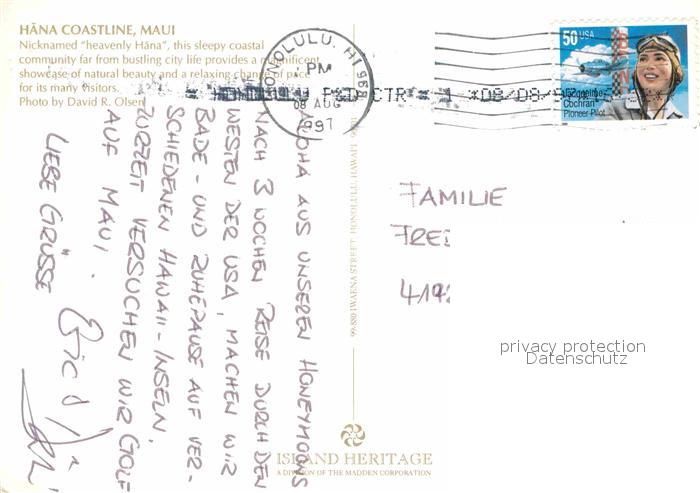 HĀNA COASTLINE, MAUI
Nicknamed "heavenly Hāna", this sleepy coastal
community far from bustling city life provides a magnificent
showcase of natural beauty and a relaxing change of pace
for its many visitors.
Photo by David R. Olsen
HONOLULU, HI 968
PM
08 AUG
1997
50 USA
Jacqueline
Cochran
Pioneer Pilot
HONOLULU P&DCTR # 1 *08/08/9
ALOHA AUS UNSEREN HONEYMOONS
NACH 3 WOCHEN REISE DURCH DEN
WESTEN DER USA, MACHEN WIR
BADE- UND RUHEPAUSE AUF VER-
SCHIEDENEN HAWAII-INSELN.
ZURZEIT VERSUCHEN WIR GOLF
AUF MAUI.
LIEBE GRÜSSE
99-880 IWAENA STREET HONOLULU, HAWAII
FAMILIE
FREI
privacy protection
Datenschutz
ISLAND HERITAGE
A DIVISION OF THE MADDEN CORPORATION